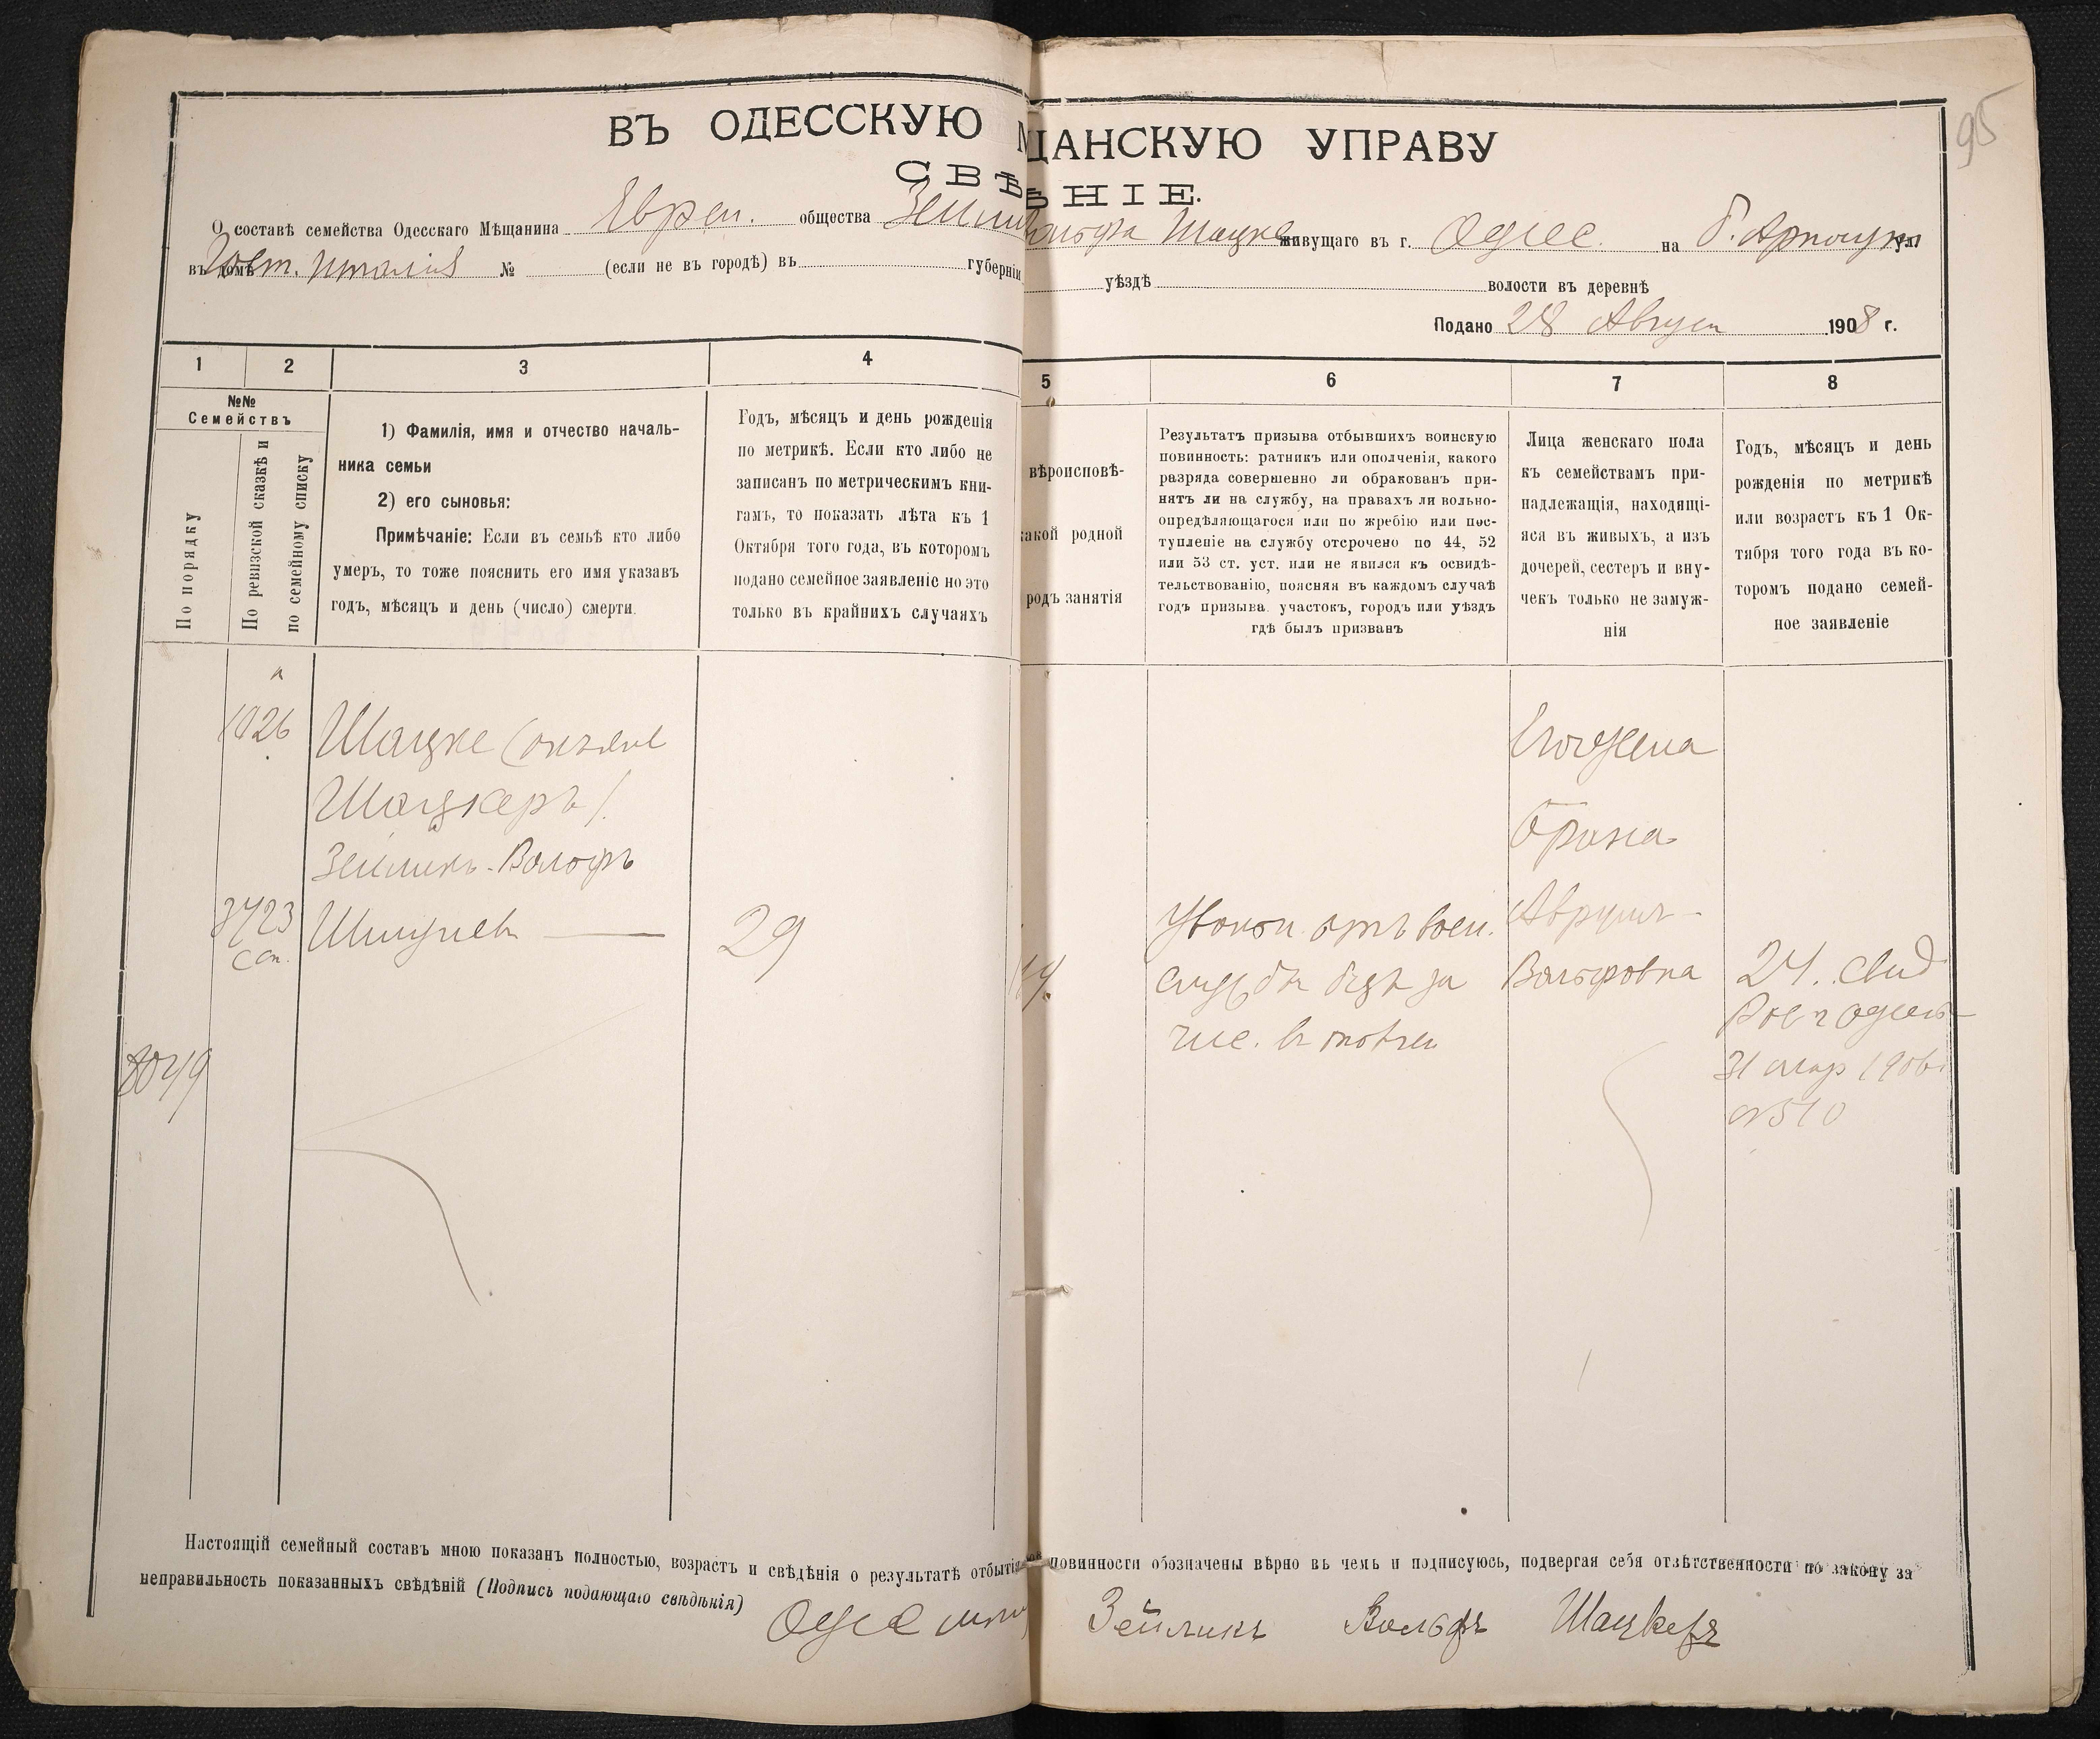 95
ВЪ ОДЕССКУЮ ЩАНСКУЮ УПРАВУ
СВѢ ѢНІЕ.
О составѣ семейства Одесскаго Мѣщанина Евреи. общества Зейли Вольфа Шацке живущаго въ г. Одесс. на Б. Арнаутск ул
въ домѣ Гост. Италія № (если не въ городѣ) въ губерніи уѣздѣ волости въ деревнѣ
Подано 28 Август 1908 г.
1 2 3 4 5 6 7 8
№№
Семействъ
По порядку
По ревизской сказкѣ и
по семейному списку
1) Фамилія, имя и отчество началь-
ника семьи
2) его сыновья:
Примѣчаніе: Если въ семьѣ кто либо
умеръ, то тоже пояснить его имя указавъ
годъ, мѣсяцъ и день (число) смерти.
Годъ, мѣсяцъ и день рожденія
по метрикѣ. Если кто либо не
записанъ по метрическимъ кни-
гамъ, то показать лѣта къ 1
Октября того года, въ которомъ
подано семейное заявленіе но это
только въ крайнихъ случаяхъ
вѣроисповѣ-
какой родной
родъ занятія
Результатъ призыва отбывшихъ воинскую
повинность: ратникъ или ополченія, какого
разряда совершенно ли обракованъ при-
нятъ ли на службу, на правахъ ли вольно-
опредѣляющагося или по жребію или пос-
тупленіе на службу отсрочено по 44, 52
или 53 ст. уст. или не явился къ освидѣ-
тельствованію, поясняя въ каждомъ случаѣ
годъ призыва. участокъ, городъ или уѣздъ
гдѣ былъ призванъ
Лица женскаго пола
къ семействамъ при-
надлежащія, находящі-
яся въ живыхъ, а изъ
дочерей, сестеръ и вну-
чекъ только не замуж-
нія
Годъ, мѣсяцъ и день
рожденія по метрикѣ
или возрастъ къ 1 Ок-
тября того года въ ко-
торомъ подано семей-
ное заявленіе
1926
Шацке (онъ же
Шацкеръ)
Зейликъ-Вольфъ
3723
сп.
Шмулев
29
2049
Увол от воен.
службы
Его жена
Вольфовна
24. Свид
31 мар 1906
№510
Настоящій семейный составъ мною показанъ полностью, возрастъ и свѣдѣнія о результатѣ отбытія повинности обозначены вѣрно въ чемъ и подписуюсь, подвергая себя отвѣтственности по закону за
неправильность показанныхъ свѣдѣній (Подпись подающаго свѣдѣнія)
Зейликъ Вольфъ Шацкеръ